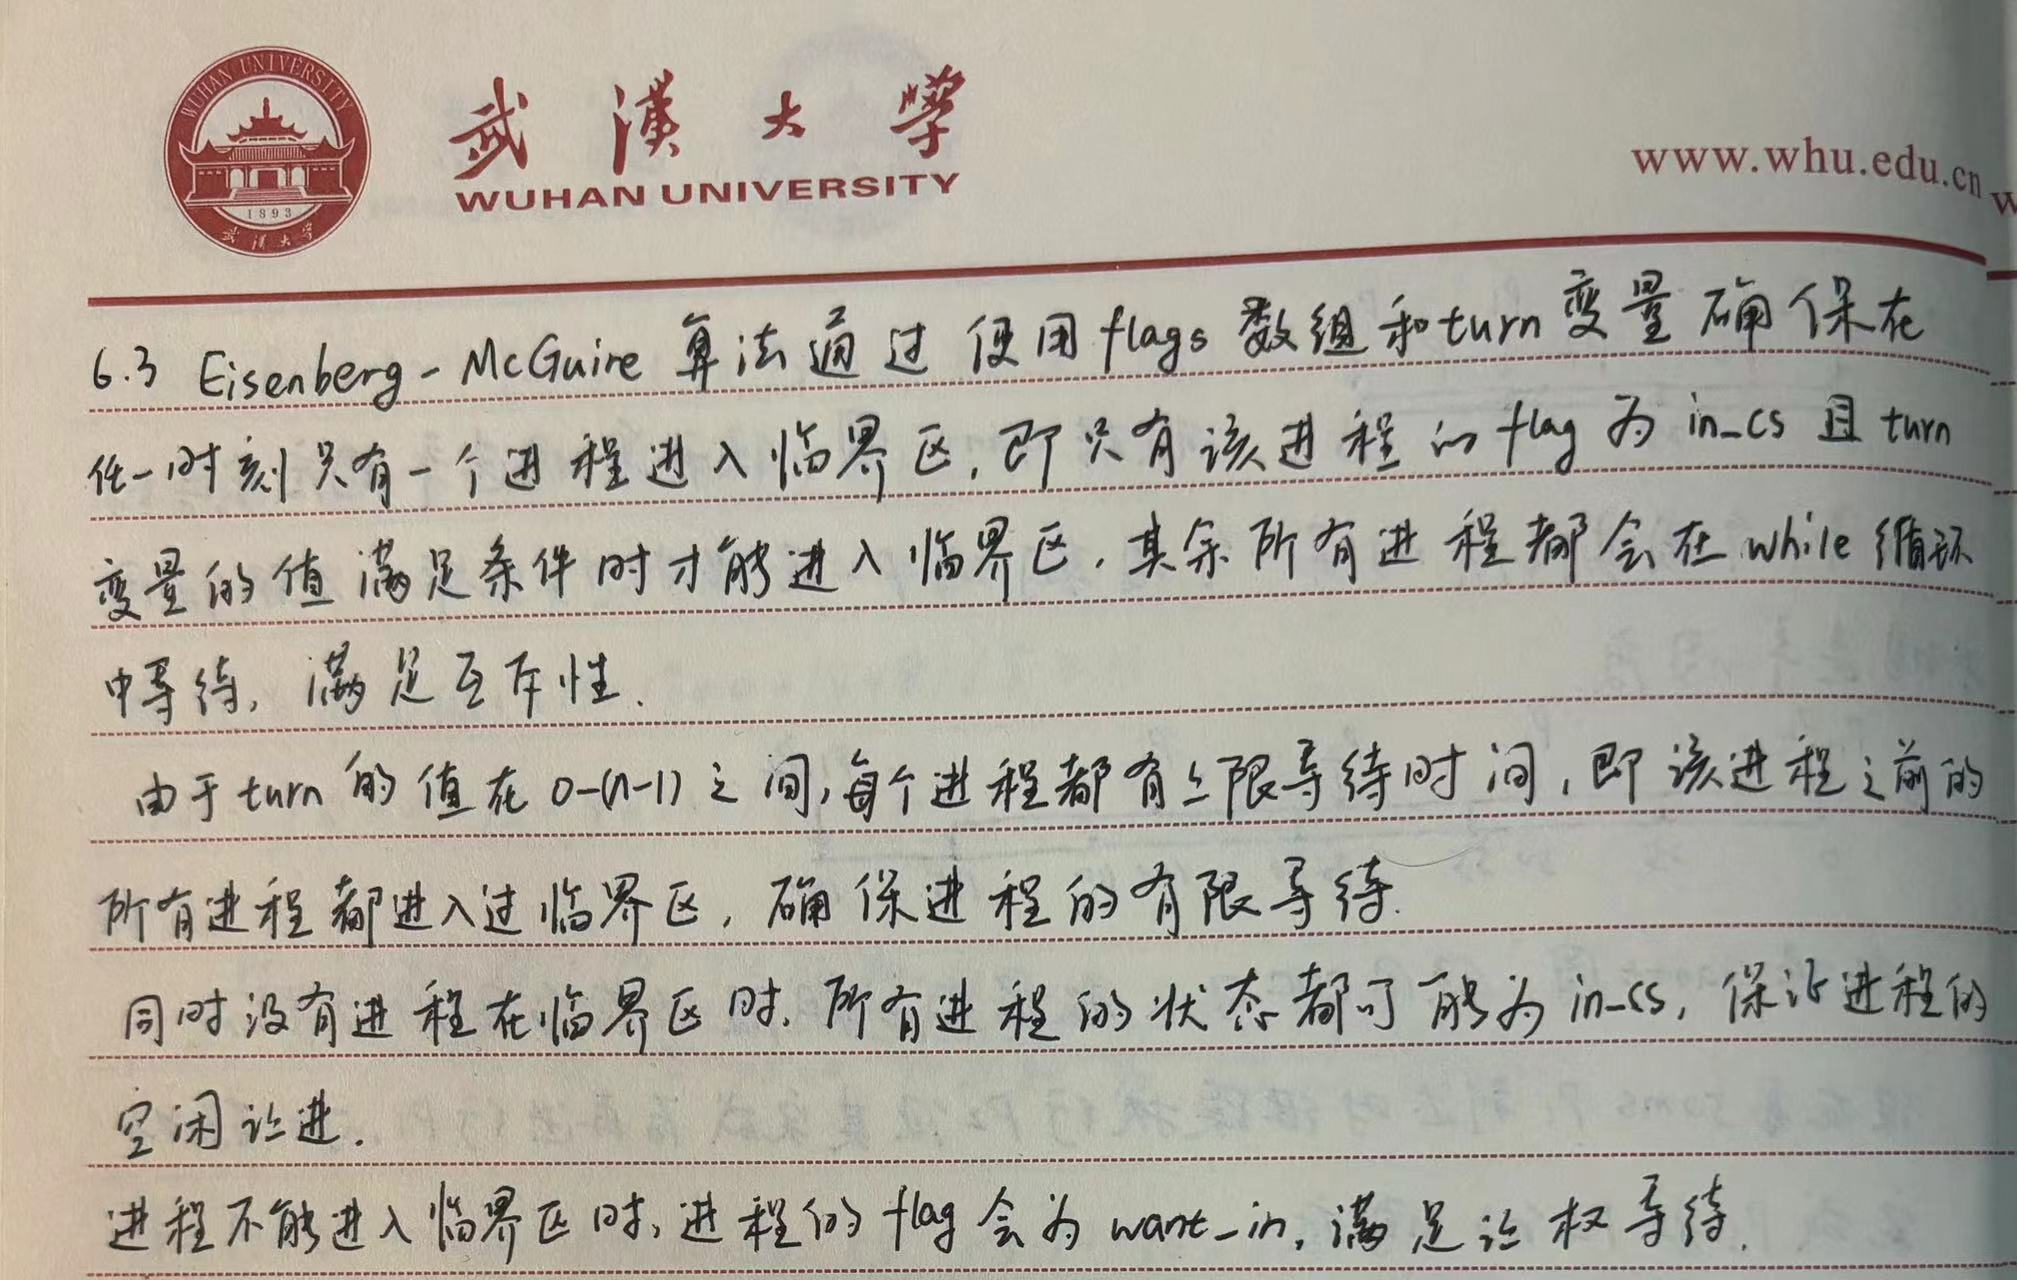 WUHAN UNIVERSITY
1893
武漢大学
武漢大學
WUHAN UNIVERSITY
www.whu.edu.cn
w
6.3 Eisenberg-McGuire 算法通过使用flags数组和turn变量确保在
任一时刻只有一个进程进入临界区,即只有该进程的flag为in_cs且turn
变量的值满足条件时才能进入临界区,其余所有进程都会在while循环
中等待,满足互斥性.
由于turn的值在0-(n-1)之间,每个进程都有上限等待时间,即该进程之前的
所有进程都进入过临界区,确保进程的有限等待.
同时没有进程在临界区时.所有进程的状态都可能为in_cs,保证进程的
空闲让进.
进程不能进入临界区时,进程的flag会为want_in,满足让权等待.